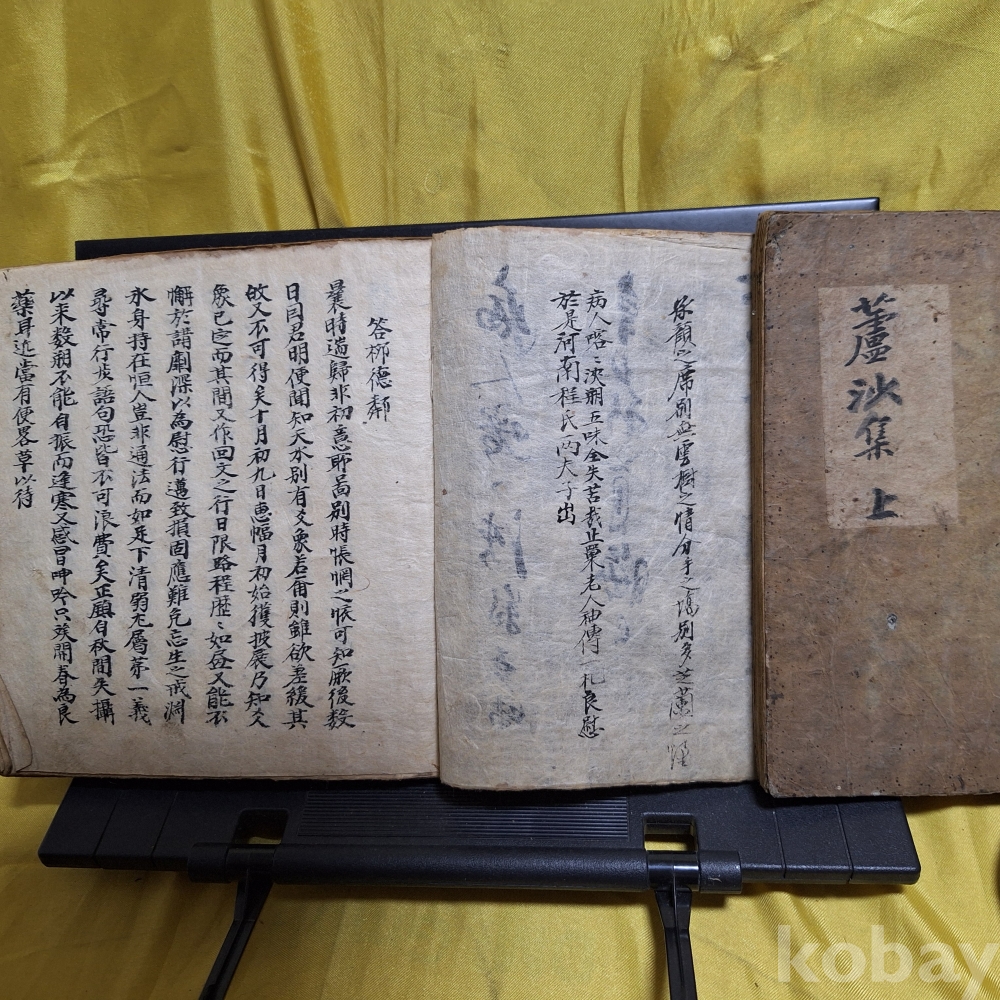 蘆沙集 上
承顔之席別無雲樹之情分手之際別多芝蘭之
病人喀〻浹朔五味全失苦哉止粟老人袖傳一札良慰
於是河南程氏兩夫子出
答柳德鄰
曩時遄歸非初意耶畐別時悵惘之懷可知厥後數
日閏君明便聞知天水別有爻象若爾則雖欲差後其
故又不可得矣十月初九日惠幅月初始獲披展乃知爻
象已定而其間又作回文之行日限路程歷〻如昼又能不
懈於譜劇深以為慰行邁致損固應難免忘生之戒淵
氷身持在恒人豈非通法而如足下清弱尤屬第一義
尋常行步語句恐皆不可浪費矣正鎮自秋間失攝
以来数朔不能自振而逢寒又感冒呻吟只俟開春為良
藥耳近當有便畧草以待
kobay